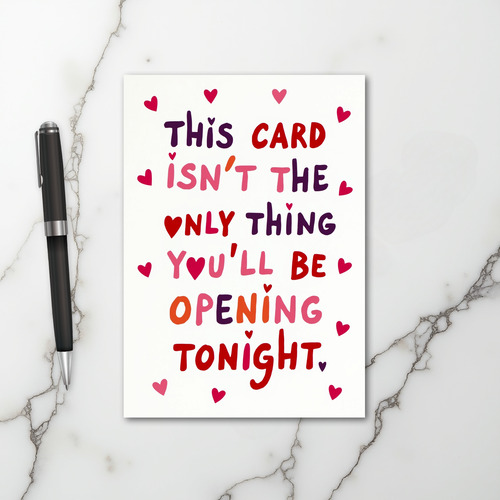 THIS CARD
ISN'T THE
ONLY THING
YOU'LL BE
OPENING
TONIGHT.